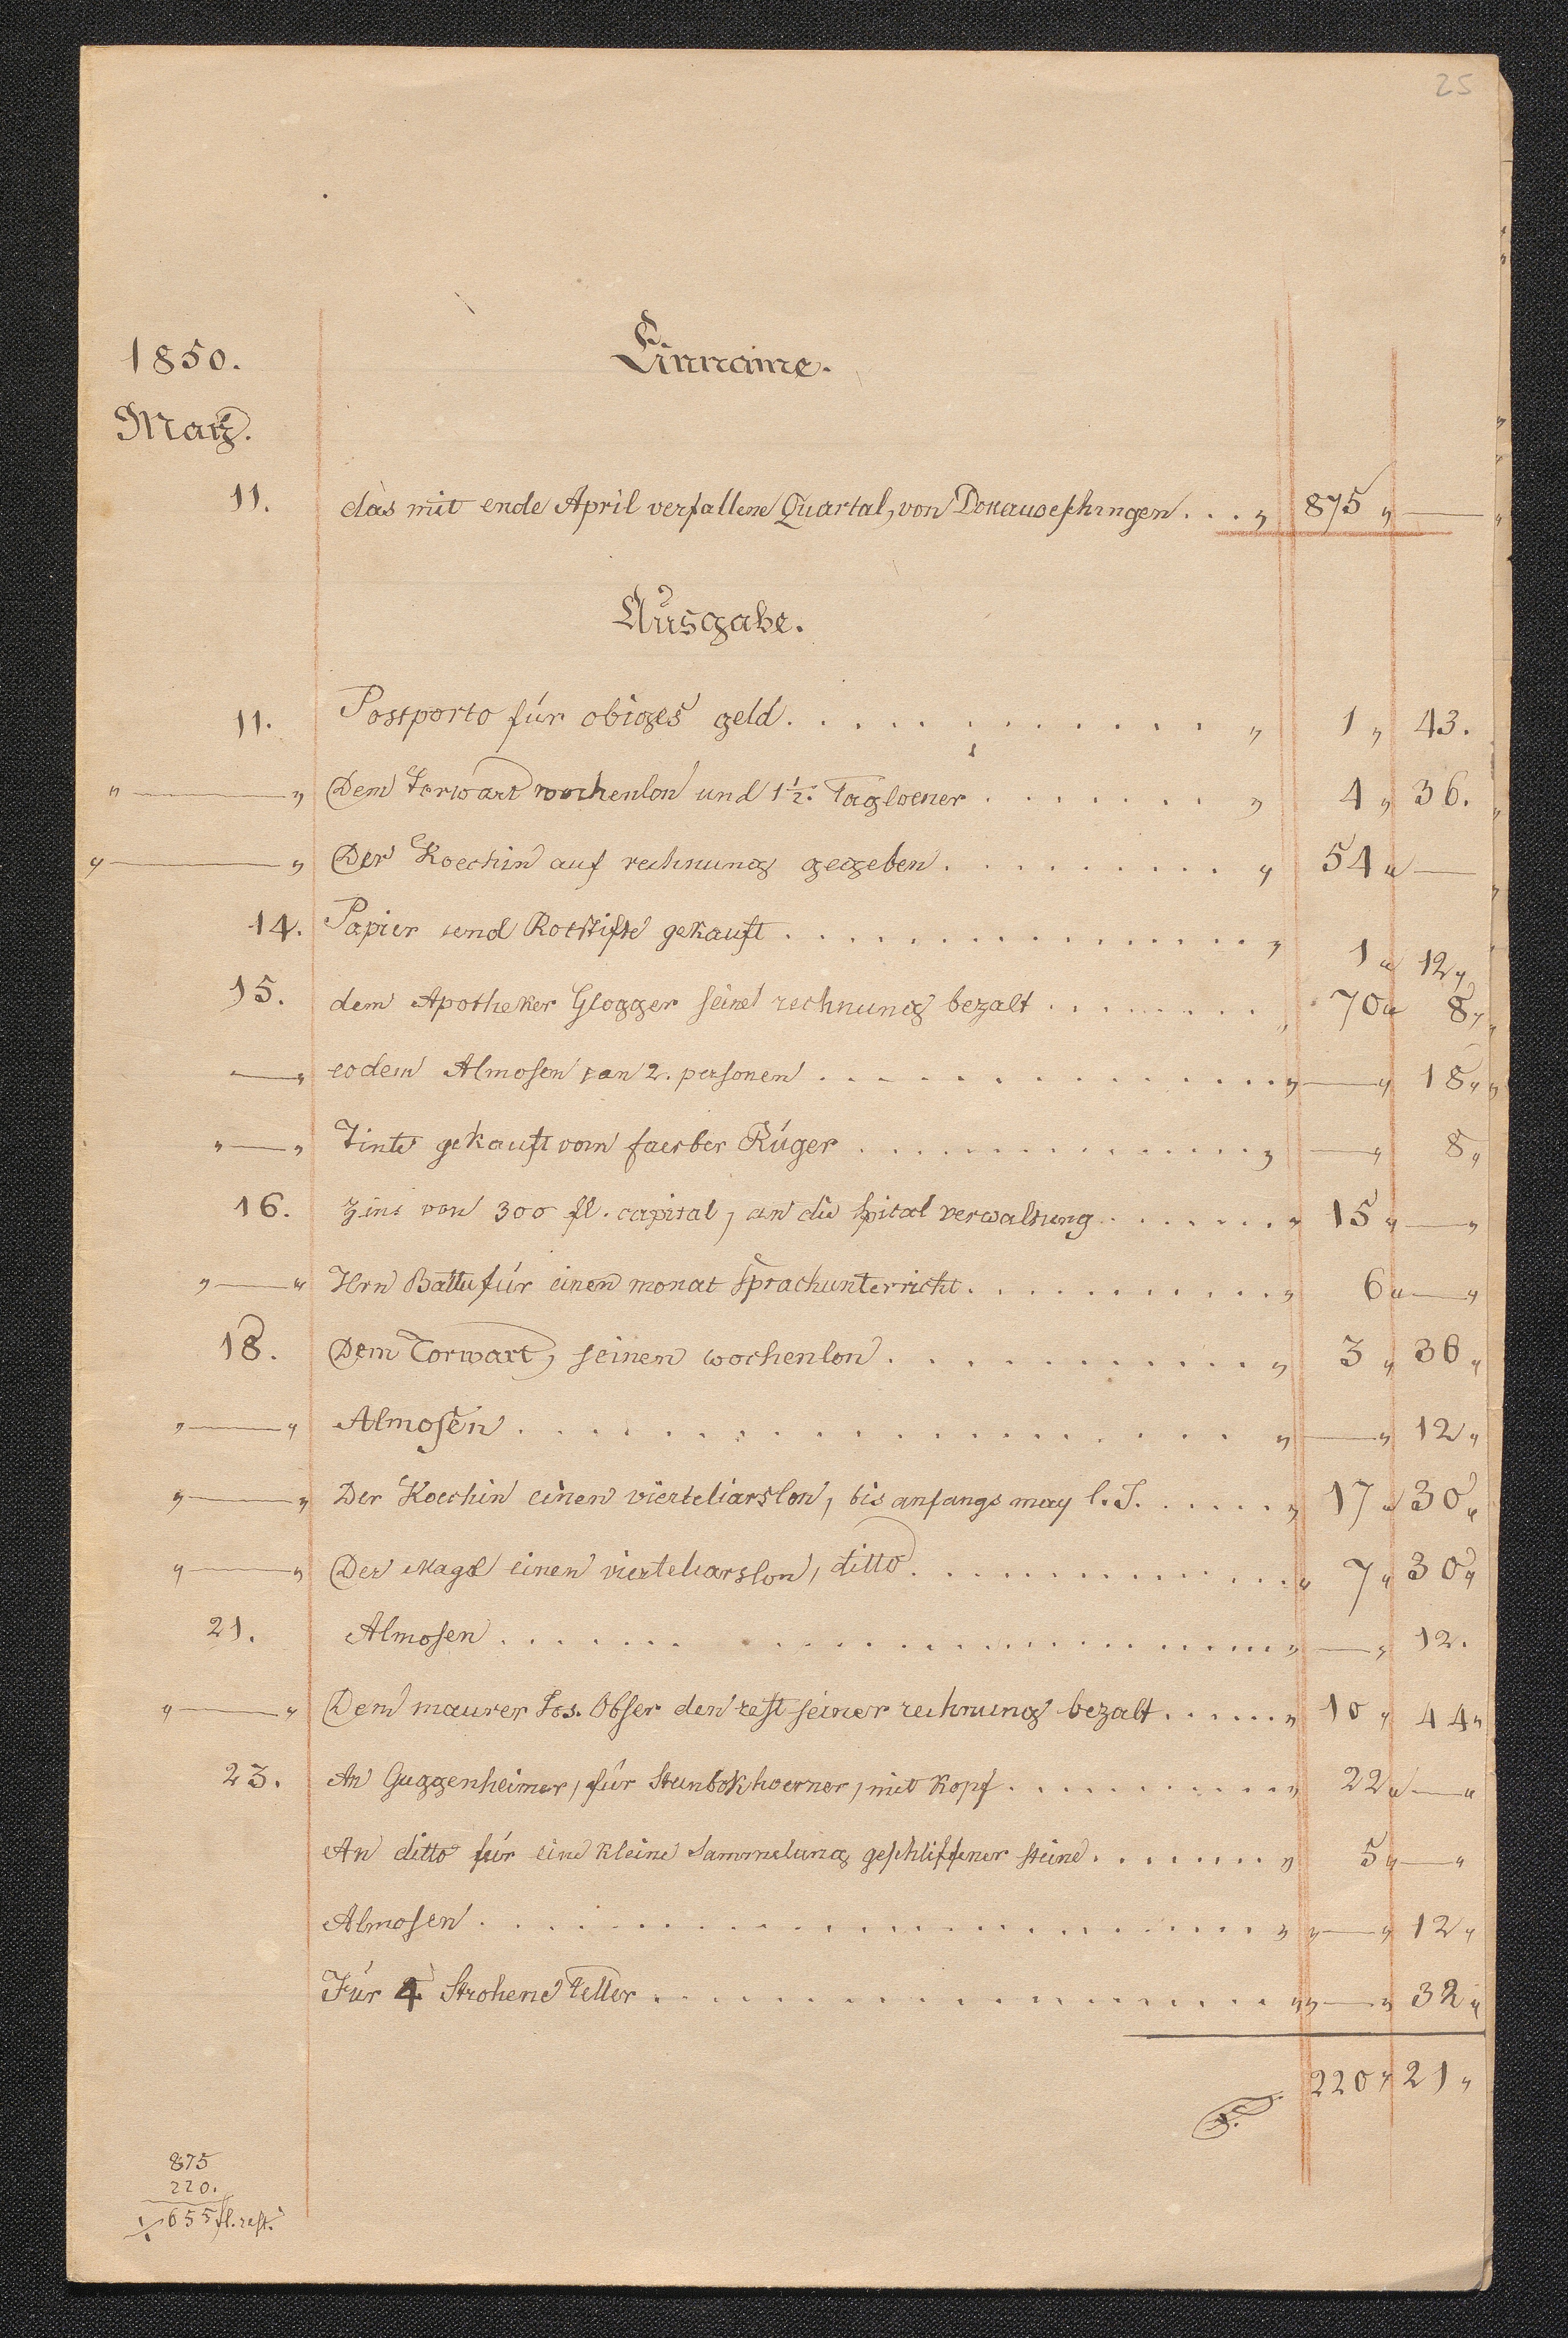 25
1850.
Einname.
März.
11. das mit ende April verfallene Quartal, von Donauoeschingen . . . „ 875 „ —
Ausgabe.
11. Postporto für obiges geld . . . . . . . . . . . . „ 1 „ 43.
„ — „ Dem Torwart wochenlon und 1½. Tagloener . . . . . . . „ 4 „ 36.
„ — „ Der Koechin auf rechnung gegeben . . . . . . . . . „ 54 „ —
14. Papier und Rotstifte gekauft . . . . . . . . . . . . . . . „ 1 „ 12 „
15. dem Apotheker Glogger seine rechnung bezalt . . . . . . . . „ 70 „ 8 „
— „ eodem Almosen an 2. personen . . . . . . . . . . . . . . „ — „ 18 „
„ — „ Tinte gekauft vom faerber Rüger . . . . . . . . . . . . . . „ — „ 8 „
16. Zins von 300 fl. capital, an die spital verwaltung . . . . . . . „ 15 „ — „
„ — „ Hrn Battu für einen monat sprachunterricht . . . . . . . . . . . „ 6 „ — „
18. Dem Torwart, seinen wochenlon . . . . . . . . . . . „ 3 „ 36 „
„ — „ Almosen . . . . . . . . . . . . . . . . . . . „ — „ 12 „
„ — „ Der Koechin einen vierteliarslon, bis anfangs may l. J. . . . . . „ 17 „ 30 „
„ — „ Der Magd einen vierteliarslon, ditto . . . . . . . . . . . . . „ 7 „ 30 „
21. Almosen . . . . . . . . . . . . . . . . . . . . . . „ — „ 12.
„ — „ Dem maurer Jos. Obser den rest seiner rechnung bezalt . . . . . . „ 10 „ 44 „
23. An Guggenheimer, für Steinbokhoerner, mit Kopf . . . . . . . . . . „ 22 „ — „
An ditto für eine kleine Sammelung geschliffener steine . . . . . . . . „ 5 „ — „
Almosen . . . . . . . . . . . . . . . . . . . . . . „ „ — „ 12 „
Für 4 Strohene teller . . . . . . . . . . . . . . . . . „ „ — „ 32 „
220 „ 21 „
875
220.
655 fl. rest.